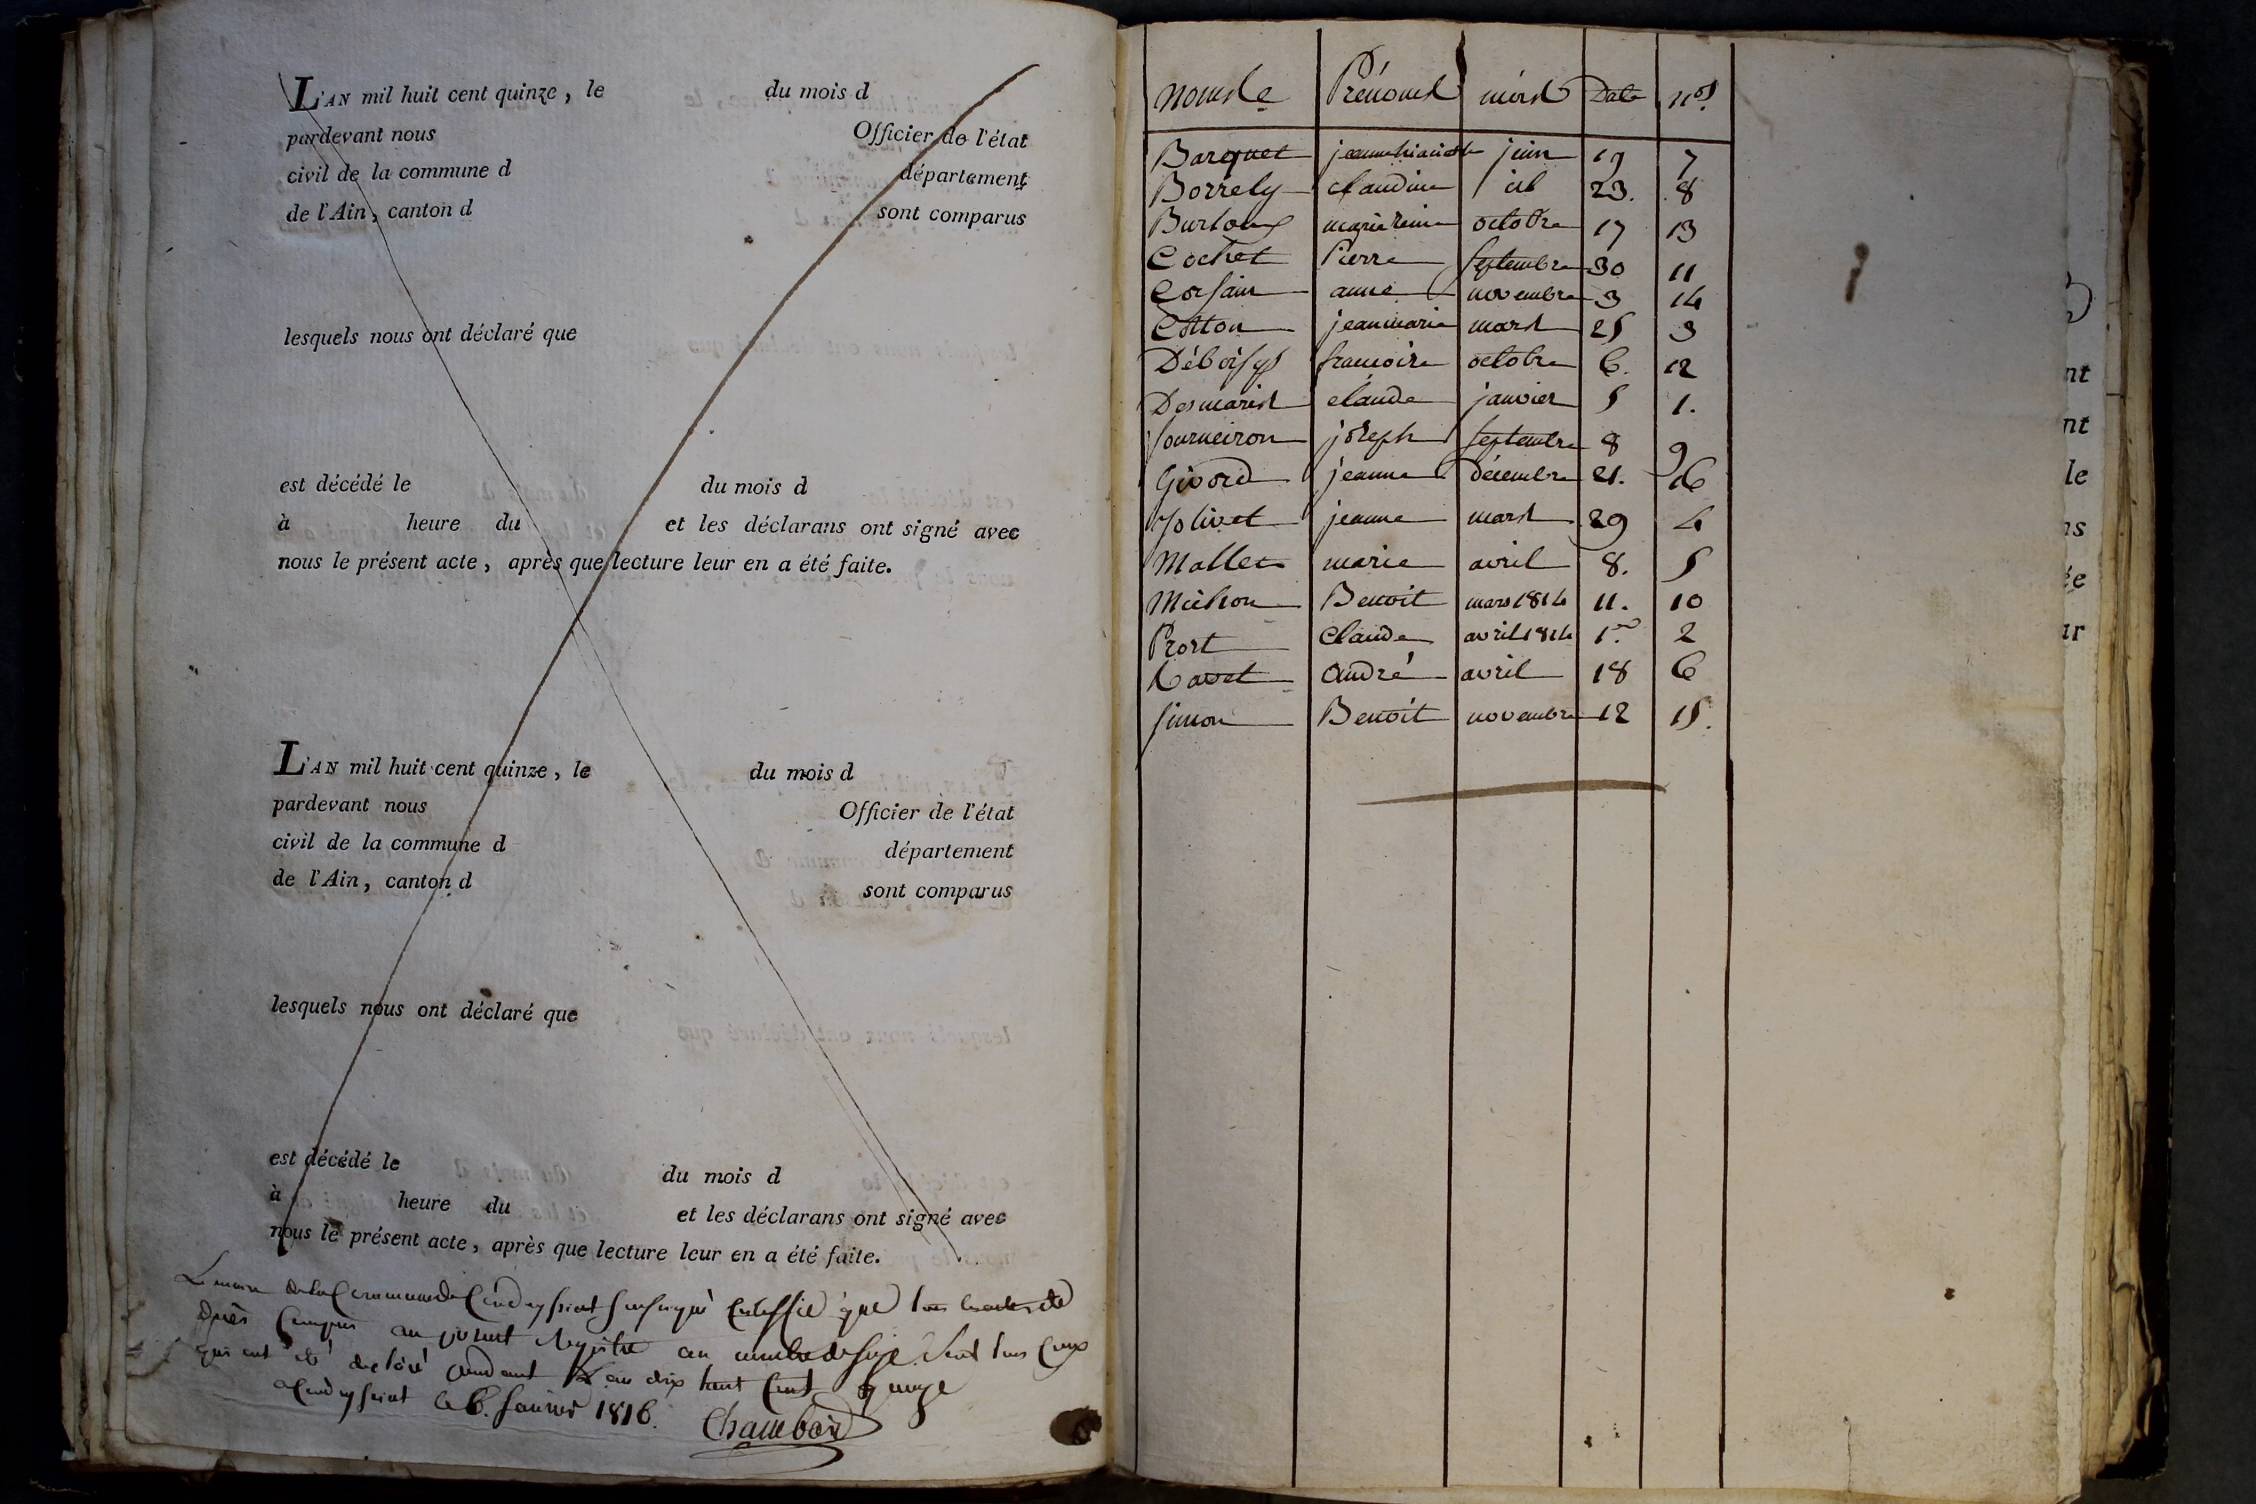 L'AN mil huit cent quinze, le du mois d
pardevant nous Officier de l'état
civil de la commune d département
de l'Ain, canton d sont comparus
lesquels nous ont déclaré que
est décédé le du mois d
à heure du et les déclarans ont signé avec
nous le présent acte, après que lecture leur en a été faite.
L'AN mil huit cent quinze, le du mois d
pardevant nous Officier de l'état
civil de la commune d département
de l'Ain, canton d sont comparus
lesquels nous ont déclaré que
est décédé le du mois d
à heure du et les déclarans ont signé avec
nous le présent acte, après que lecture leur en a été faite.
Le maire de la Commune de Condeyssiat soussigné Certiffie que tous les actes de
Décès Compris au présent Registre au nombre de seize sont tous Ceux
qui ont été déclaré pendant L'an dix huit Cent quinze
a Condeyssiat le 6. Janvier 1816.
Chambard
Noms Prénoms mois Date nos.
Barquet juin 19 7
Borrely claudine id 23. 8
octobre 17 13
Cochet Pierre septembre 30 11
Corsain anne novembre 3 14
Cotton jean marie mars 25 3
françoise octobre 6. 12
Desmaris claude janvier 5 1.
joseph septembre 8 9
Givord jeanne décembre 21. 16
Jolivet jeanne mars 29 4
Mallet marie avril 8. 5
Michon Benoit mars 1814 11. 10
Prost Claude avril 1814 1er 2
Ravet andré avril 18 6
Simon Benoit novembre 12 15.
nt
nt
le
ns
ée
ar